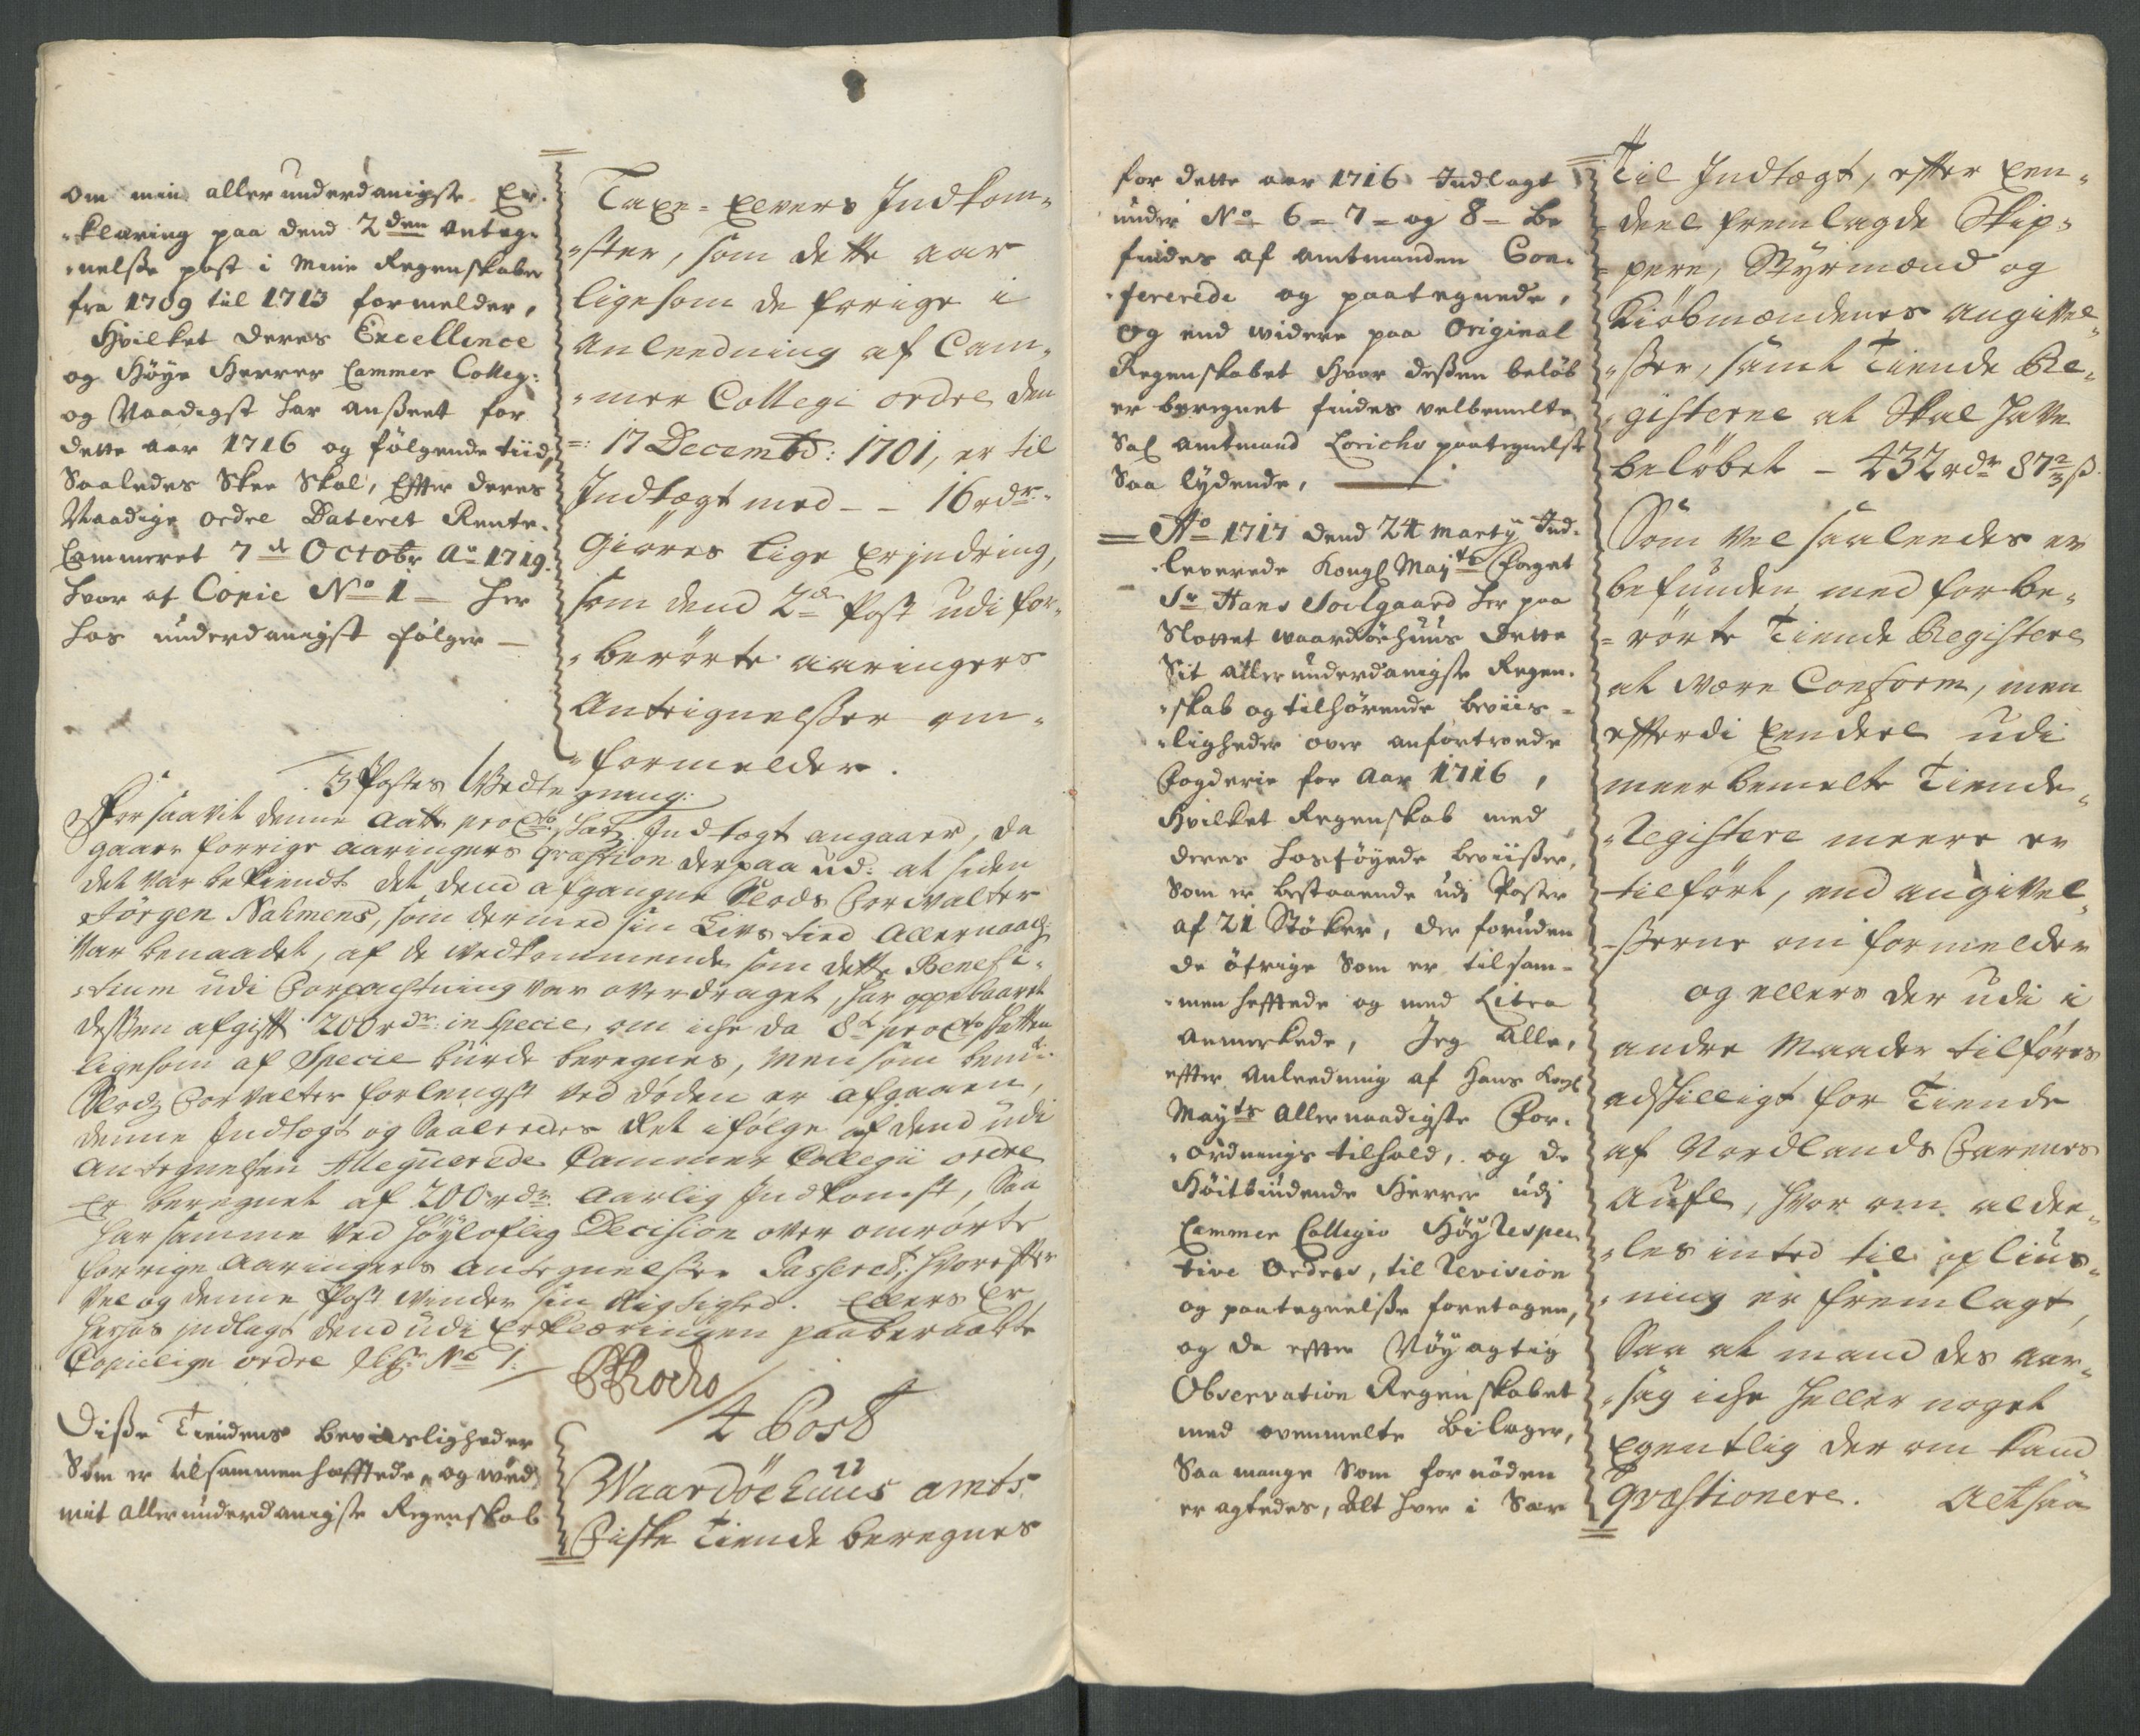 om min allerunderdanigste Er-
klæring paa dend 2den anteg-
nelse post i mine Regenskaber
fra 1709 till 1713 formelder,
Hvilket deres Excellence
og Høye Herrer Cammer Colleg:
og Naadigst har ansseet for
dette aar 1716 og følgende tiid,
Saaledes skee skal, Efter deres
Naadige ordre Dateret Rente-
Cammeret 7de Octobr Ao 1719.
hvor af Copie No 1 – her
hos underdanigst følger –
Taxe-Elvers Indkom-
ster, som dette aar
ligesom de forige i
Anleedning af Cam-
mer Collegi ordre den
17 Decembd: 1701, er til
Indtægt med – – 16 rdr.
Giøres lige Erindring,
som dend 2de Post udi for-
berørte aaringers
Antegnelsser om-
formelder.
3 Postes Vedtegning.
For saavit denne Aatte procto: skat Indtægt angaaer, da
gaaer forrige aaringers Qvæstion derpaa ud: at siden
det var bekiendt det dend afgangne Slods Forvalter
Jörgen Nahmens, som dermed sin Livs tied Allernaadst
var benaadet, af de vedkommende som dette Benefi-
tium udi Forpachtning var overdraget, har oppebaaret
dessen afgift 200 rdr: in specie, om iche da 8te procto skatten
ligesom af Specie burde beregnes, men som bemte
Slods Forvalter forlengst ved døden er afgaaen,
denne Indtægt og Saaleedes Ret ifølge af dend udi
Antegnelsen Alleguerede Cammer Collegii ordre
Er beregnet af 200 rdr: Aarlig Indkomst, Saa
har samme ved høyloflig Decision over omrørte
forrige Aaringers Antegnelsser Passeret, hvorefter
vel og denne Post vinder sin Rigtighed. Ellers Er
herhos indlagt dend udi Erklæringen paaberaabte
Copielige ordre No 1.
4 Post
Disse Tiendens beviisligheder
Som er tilsammenhefftede, og wed
mit allerunderdanigste Regenskab
Waardøehuus amts
Fiske Tiende beregnes
for dette aar 1716 Indlagt
under No 6 – 7 – og 8 – be
findes af amtmanden Con-
fererede og paategnede,
og end widere paa Original
Regenskabet hvor dessen beløb
er beregnet findes velbemelte
Sal amtmand Lorichs paategnelse
Saa lydende,
Ao 1717 dend 24 Marty Ind-
leverede Kongl Maytz Foget
Sr Hans Soelgaard her paa
Slottet waardöehuus dette
Sit allerunderdanigste Regen-
skab og tilhørende beviis-
ligheder over anfortroede
Fogderie for Aar 1716,
Hvilket Regenskab med
deres hosføyede beviisser,
Som er bestaaende udj Poster
af 21 Støker, der foruden
de øfrige Som er tilsam-
men hefftede og med Litra
anmerkede, Jeg alle,
effter anleedning af Hans Kongl
Mayts allernaadigste For-
ordnings tilhold, og de
Høitbiudende Herrer udj
Cammer Collegio Høy Respec
tive Ordres, til Revision
og paategnelsse foretagen,
og da effter Nøyagtig
Observation Regenskabet
med ovenmelte Bilager,
Saa mange Som fornøden
er agtedes, Alt hver i Sær
Til Indtægt, efter Een-
deel fremlagde Skip-
pere, Styrmænd og
Kiöbmændenes angivel-
sser, samt Tiende Re-
gisterne at Skal have
beløbet – 432 rdr 87 2/3 ß.
Som vel saaleedes er
befunden med forbe-
rørte Tiende Registere
at være Conform, men
efterdi Eendeel udi
meerbemelte Tiende-
Registere meere er
tilført, end angivel-
sserne om formelder
og ellers der udi i
andre Maader tilføres
adskilligt for Tiende
af Nordlands Farernes
Aufl, hvor om aldee-
les inted til oplius-
ning er fremlagt,
Saa at mand des aar-
sag iche heller noget
Egentlig der om kand
Qvæstionere. Altsaa